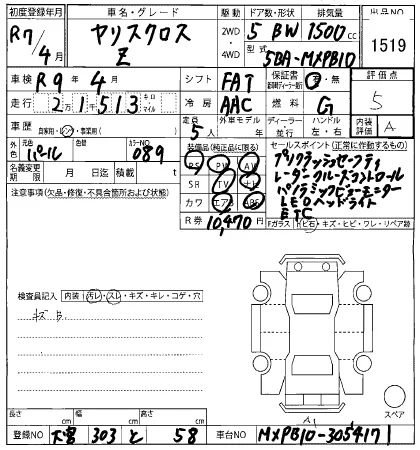 初度登録年月 車名・グレード 駆動 ドア数・形状 排気量 出品NO
R7/4月 ヤリスクロス Z 2WD・4WD 5 BW 1500cc 1519
型式 5BA-MXPB10
車検 R9年4月 シフト FAT 保証書 有・無 評価点 5
走行 2万1513 キロ・マイル 冷房 AAC 燃料 G
車歴 自家用・レンタ・事業用( ) 定員 5人 外車モデル年 ディーラー・並行 ハンドル 左・右 内装評価 A
外色 元色 パール 色替 カラーNO 089
装備品(純正品に限る) セールスポイント(正常に作動するもの)
名義変更期限 月 日迄 積載 t
PS PW AW
SR TV ナビ
カワ エアB ABS
プリクラッシュセーフティ
レーダークルーズコントロール
パノラミックビューモニター
LEDヘッドライト
ETC
注意事項(欠品・修復・不具合箇所および状態)
R券 10,470円
Fガラス ヒビ石・キズ・ヒビ・ワレ・リペア跡
検査員記入 内装・汚レ・スレ・キズ・キレ・コゲ・穴
キズ
スペア
A1
長さ cm 幅 cm 高さ cm
登録NO 303 と 58 車台NO MXPB10-3054171